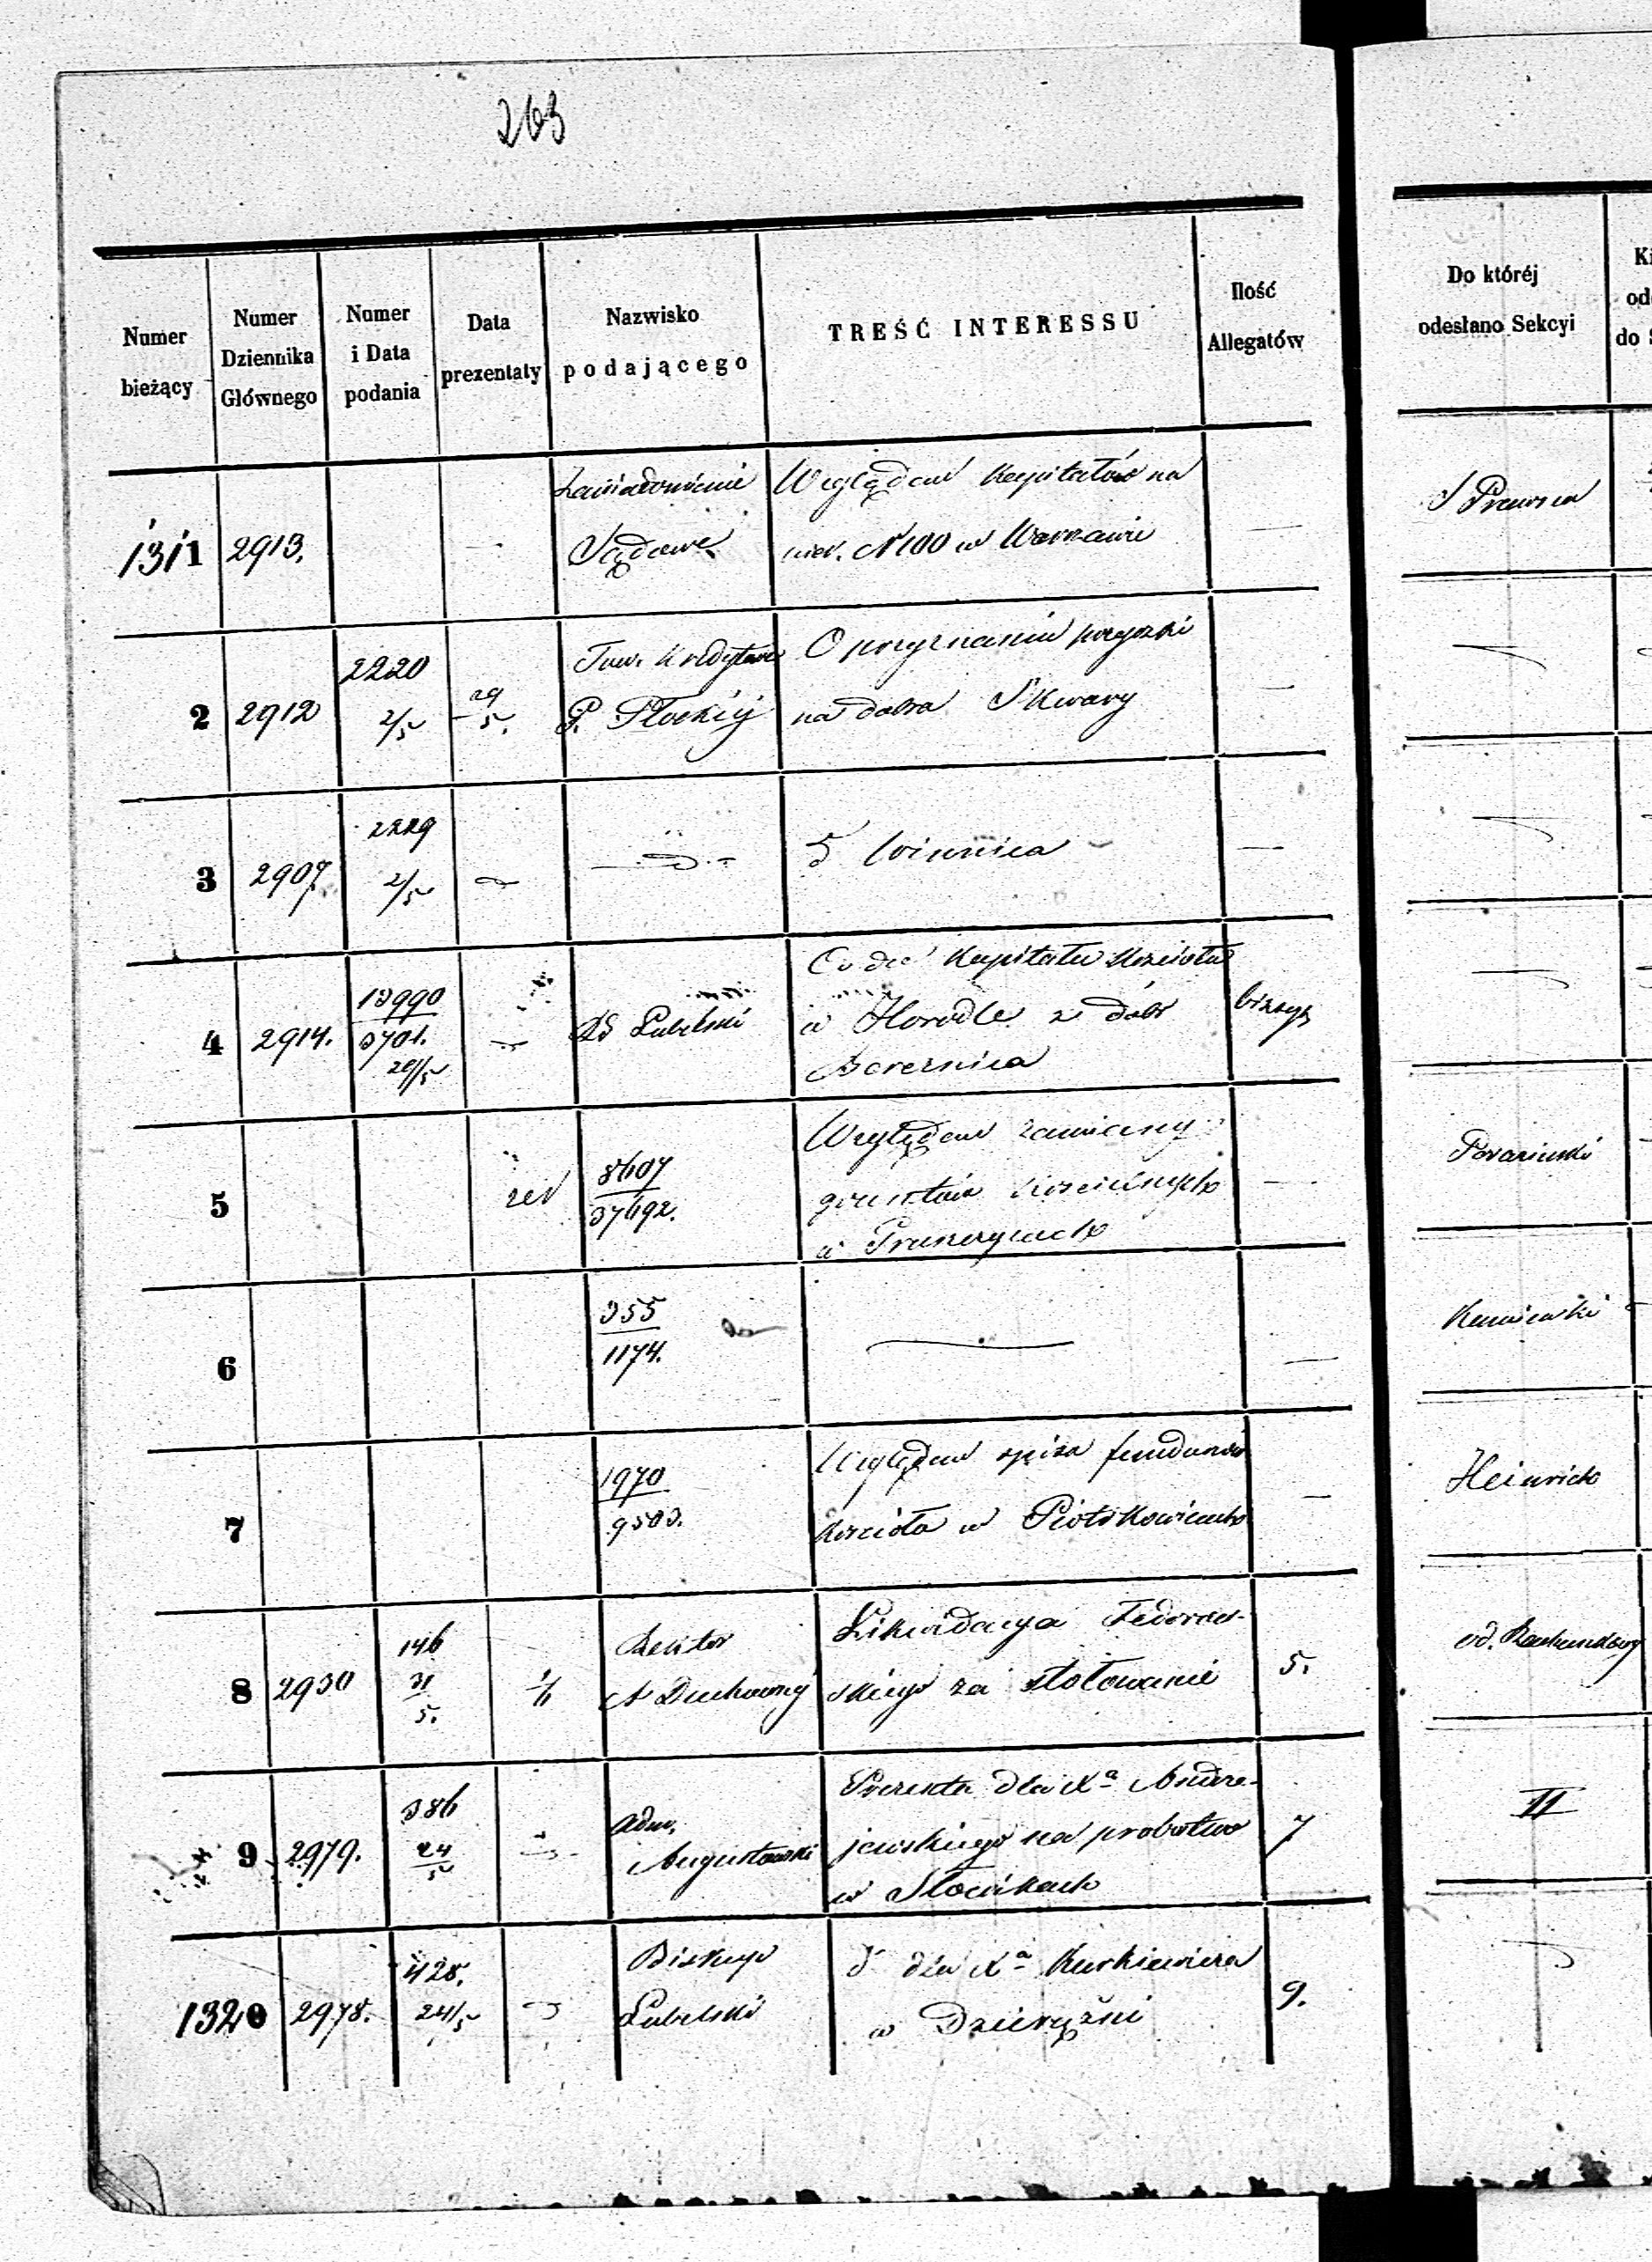 263
Numer bieżący
Numer Dziennika Głównego
Numer i Data podania
Data prezentaty
Nazwisko podającego
TREŚĆ INTERESSU
Ilość Allegatów
Do któréj odesłano Sekcyi
1311 2913. — Zawiadomienie Względem Kapitałów na — S Prawna
Sądowe nier. N 100 w Warszawie
2 2912 2220 2/5 29/5. Tow. Kredytowe O przyznaniu pożyczki —
P. Płockiéj na dobra Skwary
3 2907. 2229 2/5 d Winnica —
4 2914. 13990
3701. 20/5 Rd Lubelski Co do Kapitału Kościoła
w Horodle z dóbr
5 8607
37692. Względem zamiany — 
gruntów kościelnych
w
6 355
1174. —
7 1970
9503. Względem spisu funduszów — Heinrich
Kościoła w Piotrkowicach
8 2930 146
31
5. 1/6 Rektor Likwidacya Fedorow-
A Duchownéj skiego za stołowanie 5. od. Rachunkowy
9 2979. 386
24
5 Adm. Prezenta dla Xa Andrze-
Augustowski jewskiego na probostwo 7 II
w Słowikach
1320 2978. 428.
24/5 Biskup d dla Xa Kurkiewicza
Lubelski w Dzierążni 9.